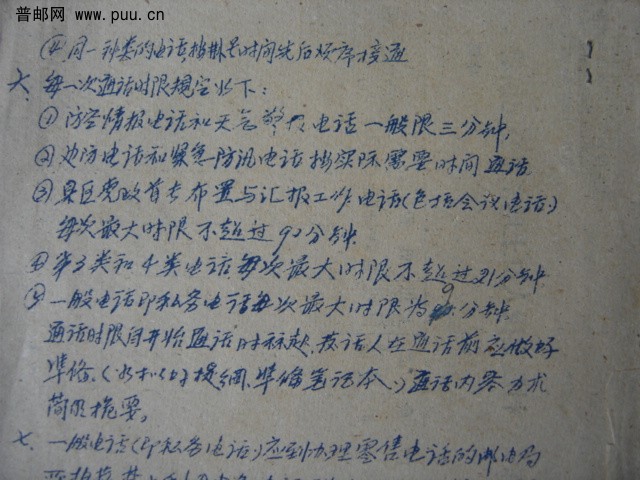 普邮网
www.puu.cn
④同一种类的电话按挂号时间先后顺序接通
六、每一次通话时限规定如下：
①防空情报电话和天气警报电话一般限三分钟,
②边防电话和紧急防汛电话按实际需要时间通话
③县区党政首长布置与汇报工作电话(包括会议电话)
每次最大时限不超过90分钟.
④第3类和4类电话每次最大时限不超过21分钟
⑤一般电话即私务电话每次最大时限为9分钟
通话时限自开始通话时标起,发话人在通话前应做好
准备,(提綱、準備笔记本、)通话内容力求
简明扼要。
七、一般电话(即私务电话)应到办理零售电话的邮电局